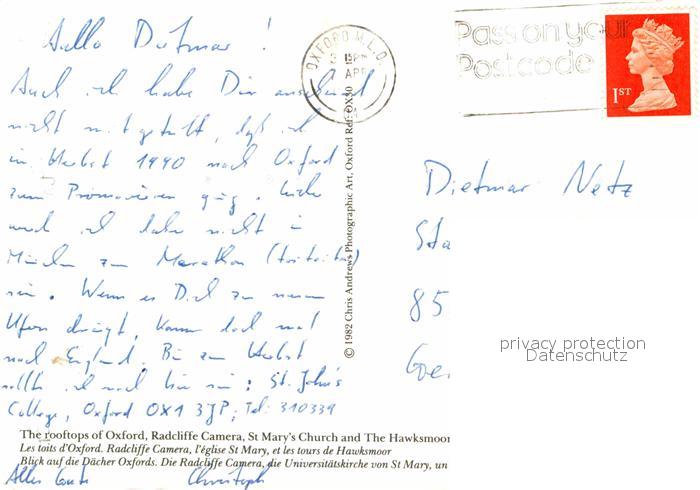 Hallo Dietmar !
Auch ich habe Dir anscheinend
nicht mitgeteilt, daß ich
im Herbst 1990 nach Oxford
zum Promovieren ging.
werd ich daher nicht in
München zum Marathon
sein. Wenn es Dich zu neuen
Ufern drängt, komm doch mal
nach England. Bis zum Herbst
sollte ich noch hier sein: St. John's
College, Oxford OX1 3JP; Tel: 310339
Alles Gute Christoph
The rooftops of Oxford, Radcliffe Camera, St Mary's Church and The Hawksmoor
Les toits d'Oxford. Radcliffe Camera, l'église St Mary, et les tours de Hawksmoor
Blick auf die Dächer Oxfords. Die Radcliffe Camera, die Universitätskirche von St Mary, un
© 1982 Chris Andrews Photographic Art, Oxford Ref: OX30
OXFORD M.L.O.
APR
Pass on your
Postcode
1ST
Dietmar Netz
Sta
85
Goe
privacy protection
Datenschutz